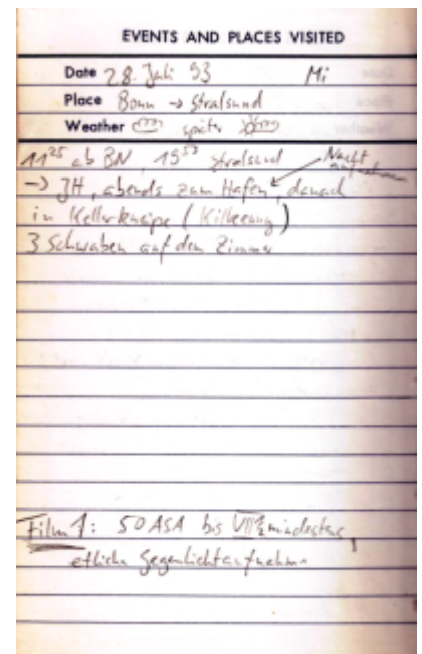 EVENTS AND PLACES VISITED
Date 28. Juli 93 Mi
Place Bonn → Stralsund
Weather später
11²⁵ ab BN, 19⁵³ Stralsund Nacht
→ JH, abends zum Hafen, danach
in Kellerkneipe (Kilkenny)
3 Schwaben auf dem Zimmer
Film 1: 50 ASA bis mindestens,
etliche Gegenlichtaufnahmen